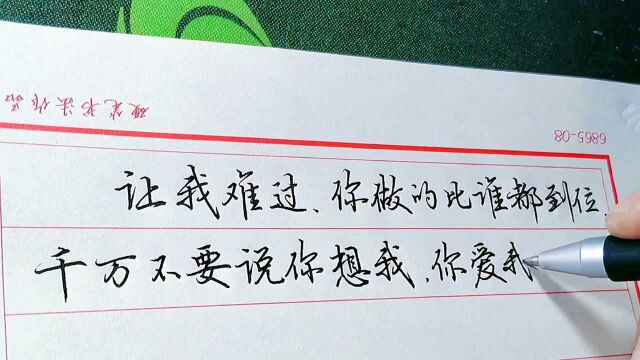 硬笔书法作品
6865-08
让我难过、你做的比谁都到位.
千万不要说你想我.你爱我